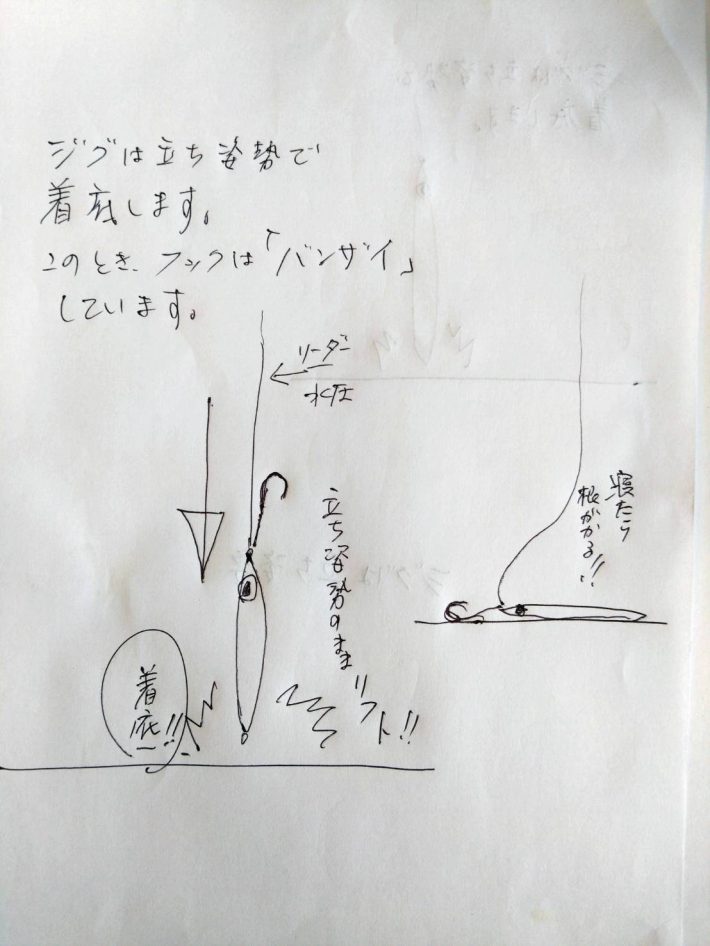 ジグは立ち姿勢で
着底します。
このとき、フックは「バンザイ」
しています。
リーダー
水圧
立ち姿勢のまま
リフト!!
着底!!
寝たら
根がかる!!